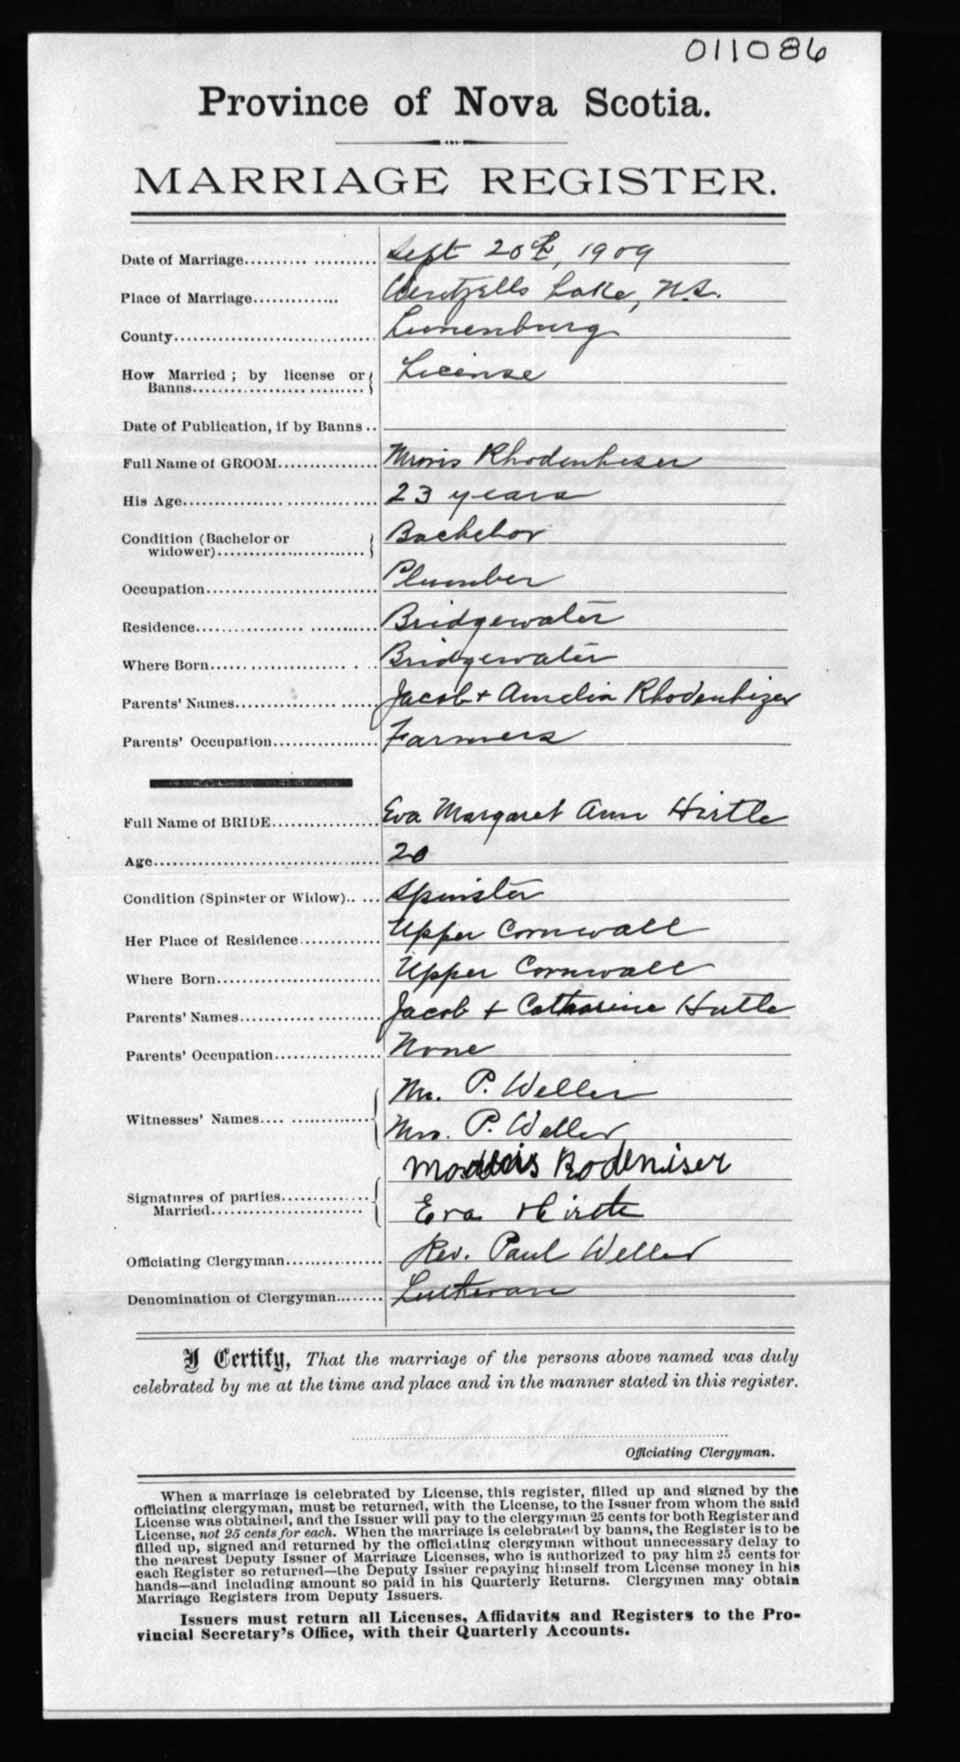 011086
Province of Nova Scotia.
MARRIAGE REGISTER.
Date of Marriage.......... .......... Sept 20th, 1909
Place of Marriage............. Wentzells Lake, N.S.
County.............................. Lunenburg
How Married ; by license or License
Banns..............................
Date of Publication, if by Banns ..
Full Name of GROOM............... Morris Rhodenheser
His Age............................. 23 years
Condition (Bachelor or Bachelor
widower)......................
Occupation......................... Plumber
Residence.......................... Bridgewater
Where Born...................... . . .. Bridgewater
Parents' Names..................... Jacob + Amelia Rhodenhizer
Parents' Occupation................ Farmers
Full Name of BRIDE................. Eva Margaret Ann Hirtle
Age................................. 20
Condition (Spinster or Widow).. ... Spinster
Her Place of Residence............ Upper Cornwall
Where Born......................... Upper Cornwall
Parents' Names..................... Jacob + Catharine Hirtle
Parents' Occupation............... None
Mr. P. Weller
Witnesses' Names.... ............
Mrs. P. Weller
Rodeniser
Signatures of parties..............
Married........................
Eva Hirtle
Officiating Clergyman............... Rev. Paul Weller
Denomination of Clergyman........ Lutheran
I Certify, That the marriage of the persons above named was duly
celebrated by me at the time and place and in the manner stated in this register.
Officiating Clergyman.
When a marriage is celebrated by License, this register, filled up and signed by the
officiating clergyman, must be returned, with the License, to the Issuer from whom the said
License was obtained, and the Issuer will pay to the clergyman 25 cents for both Register and
License, not 25 cents for each. When the marriage is celebrated by banns, the Register is to be
filled up, signed and returned by the officiating clergyman without unnecessary delay to
the nearest Deputy Issuer of Marriage Licenses, who is authorized to pay him 25 cents for
each Register so returned—the Deputy Issuer repaying himself from License money in his
hands—and including amount so paid in his Quarterly Returns. Clergymen may obtain
Marriage Registers from Deputy Issuers.
Issuers must return all Licenses, Affidavits and Registers to the Pro-
vincial Secretary's Office, with their Quarterly Accounts.